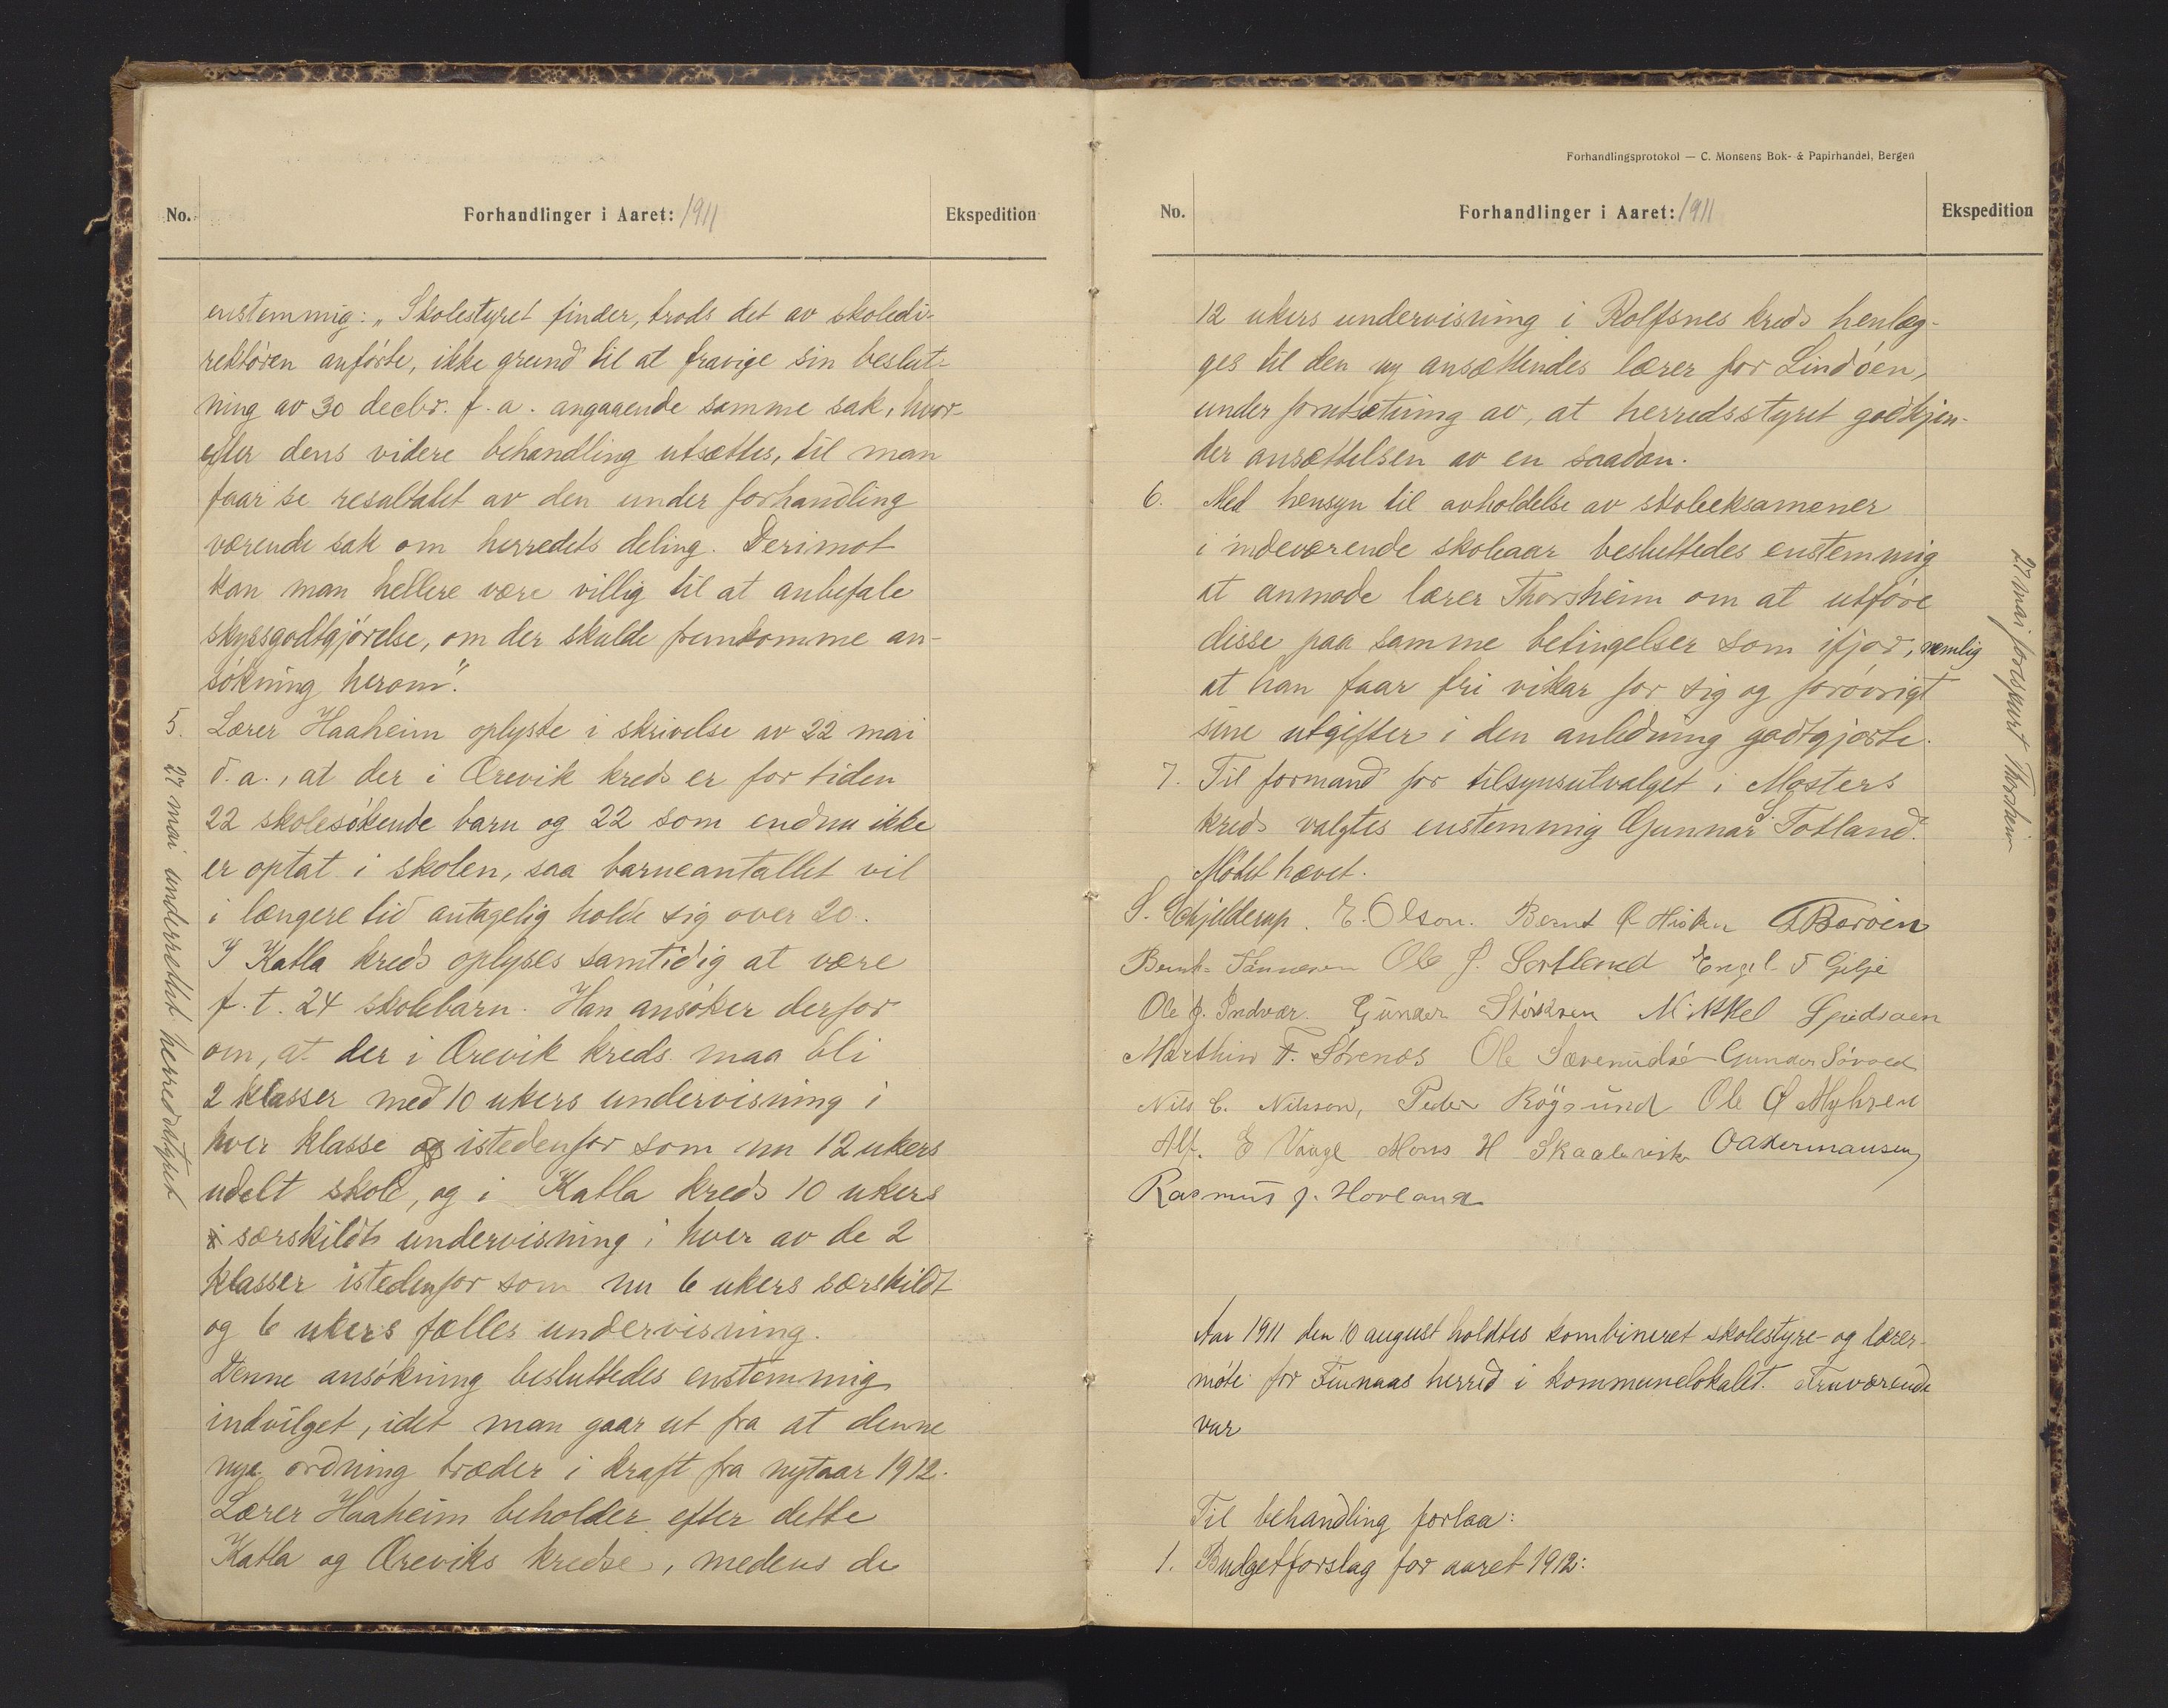 No.
Forhandlinger i Aaret: 1911
Ekspedition
enstemmig: „Skolestyret finder, trods det av skoledi-
rektören anförte, ikke grund til at fravige sin beslut-
ning av 30 decbr. f.a. angaaende samme sak, hvor-
efter dens videre behandling utsættes, til man
faar se resultatet av den under forhandling
værende sak om herredets deling. Derimot
kan man hellere være villig til at anbefale
skyssgodtgjörelse, om der skulde fremkomme an-
sökning herom".
5. Lærer Haaheim oplyste i skrivelse av 22 mai
d.a., at der i Ørevik kreds er for tiden
22 skolesökende barn og 22 som endnu ikke
er optat i skolen, saa barneantallet vil
i længere tid antagelig holde sig over 20.
I Katla kreds oplyses samtidig at være
f.t. 24 skolebarn. Han ansöker derfor
om, at der i Ørevik kreds maa bli
2 klasser med 10 ukers undervisning i
hver klasse og istedenfor som nu 12 ukers
udelt skole, og i Katla kreds 10 ukers
i særskildt undervisning i hver av de 2
klasser istedenfor som nu 6 ukers særskildt
og 6 ukers fælles undervisning.
Denne ansökning besluttedes enstemmig
indvilget, idet man gaar ut fra at denne
nye ordning træder i kraft fra nytaar 1912.
Lærer Haaheim beholder efter dette
Katla og Øreviks kredse, medens de
27 mai underrettet herredstyret
Forhandlingsprotokol — C. Monsens Bok- & Papirhandel, Bergen
No.
Forhandlinger i Aaret: 1911
Ekspedition
12 ukers undervisning i Rolfsnes kreds henlæg-
ges til den ny ansættendes lærer for Lindöen,
under forutsætning av, at herredsstyret godkjen-
der ansættelsen av en saadan.
6. Med hensyn til avholdelse av skoleeksamener
i indeværende skoleaar besluttedes enstemmig
at anmode lærer Thorsheim om at utföre
disse paa samme betingelser som ifjor, nemlig
at han faar fri vikar for sig og forövrigt
sine utgifter i den anledning godtgjorte.
7. Til formand for tilsynsutvalget i Mosters
kreds valgtes enstemmig Gunnar S. Totland.
Mödet hævet.
S. Schjelderup. E. Olson. Bernt Ø
Ole J. Sortland Engel T Gilje
Ole J. Indvær. Gunder Mikkel
Marthin T. Ole Gunder
Nils C. Nilsson, Peder Röysund Ole Ø Myhren
Alf. E Vaage Mons H Skaalevik O Akermansen
Rasmus J. Hovland
27 mai fors. Thorsheim
Aar 1911 den 10 august holdtes kombineret skolestyre- og lærer-
möte for Finnaas herred i kommunelokalet. Fraværende
var
Til behandling forlaa:
1. Budgetforslag for aaret 1912: